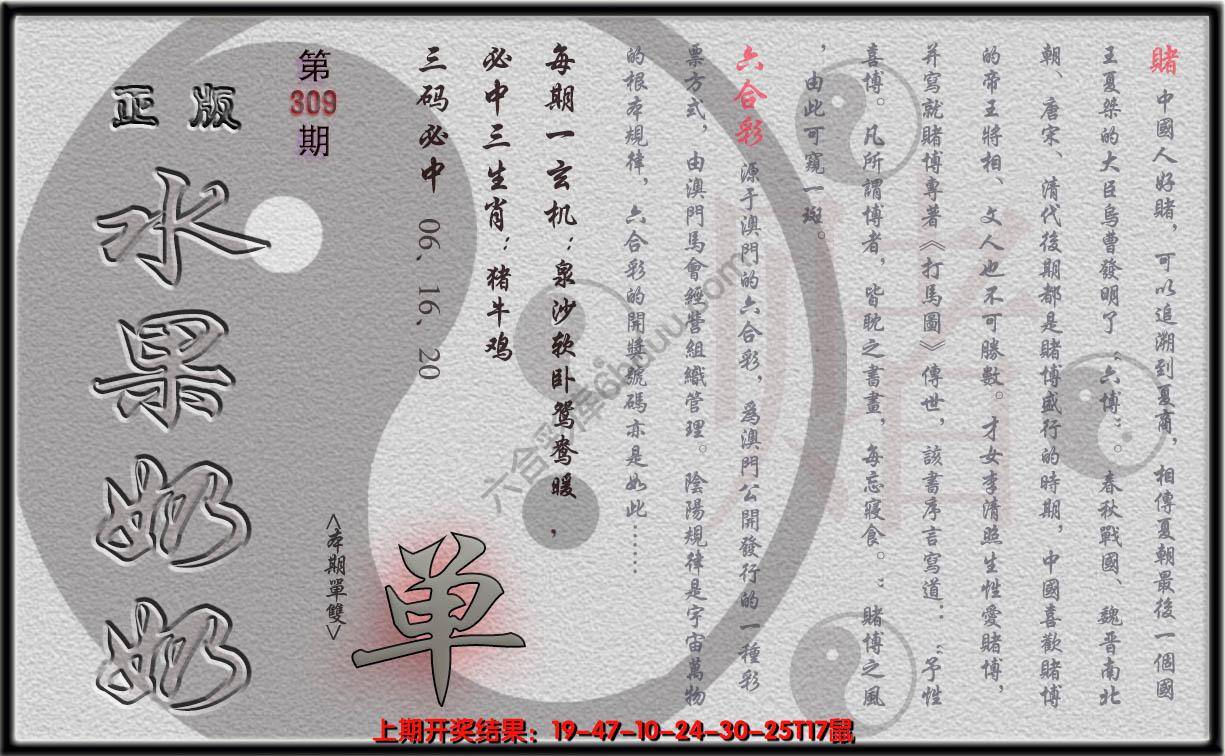 賭 中國人好賭，可以追溯到夏商，相傳夏朝最後一個國
王夏桀的大臣烏曹發明了“六博”。春秋戰國、魏晋南北
朝、唐宋、清代後期都是賭博盛行的時期，中國喜歡賭博
的帝王將相、文人也不可勝數。才女李清照生性愛賭博，
并寫就賭博專著《打馬圖》傳世，該書序言寫道：“予性
喜博。凡所謂博者，皆耽之書畫，每忘寢食。”賭博之風
，由此可窺一斑。
六合彩 源于澳門的六合彩，爲澳門公開發行的一種彩
票方式，由澳門馬會經營組織管理。陰陽規律是宇宙萬物
的根本規律，六合彩的開獎號碼亦是如此……
每期一玄机：泉沙软卧鸳鸯暖，
必中三生肖：猪牛鸡
三码必中 06、16、20
第
309
期
正版
水果奶奶
<本期單雙>
单
六合彩库6huuu.com
上期开奖结果：19-47-10-24-30-25T17鼠